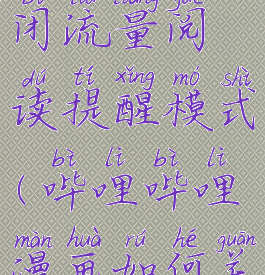 闭流量阅
dú tí xǐng mó shì
读提醒模式
bì lì bì lì
(哔哩哔哩
màn huà rú hé guān
漫画如何关